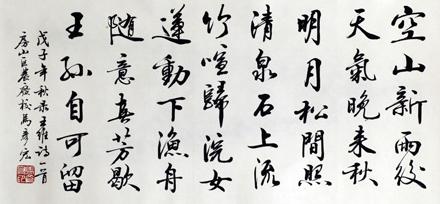 空山新雨後
天氣晚来秋
明月松間照
清泉石上流
竹喧歸浣女
蓮動下漁舟
随意春芳歇
王孫自可留
戊子年秋录王維詩一首
房山